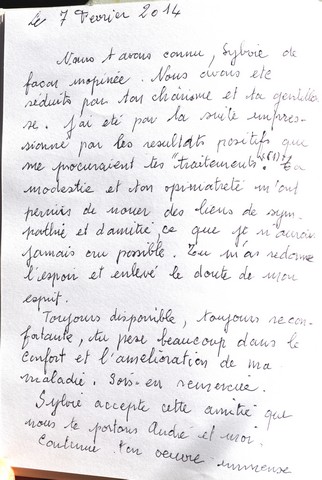 Le 7 Fevrier 2014
Nous t'avons connu, Sylvie de
façon inopinée. Nous avons été
séduits par ton charisme et ta gentilles
se. J'ai été par la suite impres-
sionné par les resultats positifs que
me procuraient tes "traitements". Ta
modestie et ton opiniatreté m'ont
permis de nouer des liens de sym-
pathie et d'amitié, ce que je n'aurais
jamais cru possible. Tu m'as redonné
l'espoir et enlevé le doute de mon
esprit.
Toujours disponible, toujours récon-
fortante, tu pese beaucoup dans le
confort et l'amélioration de ma
maladie. Sois-en remerciée.
Sylvie accepte cette amitié que
nous te portons André et moi.
Continue ton oeuvre immense